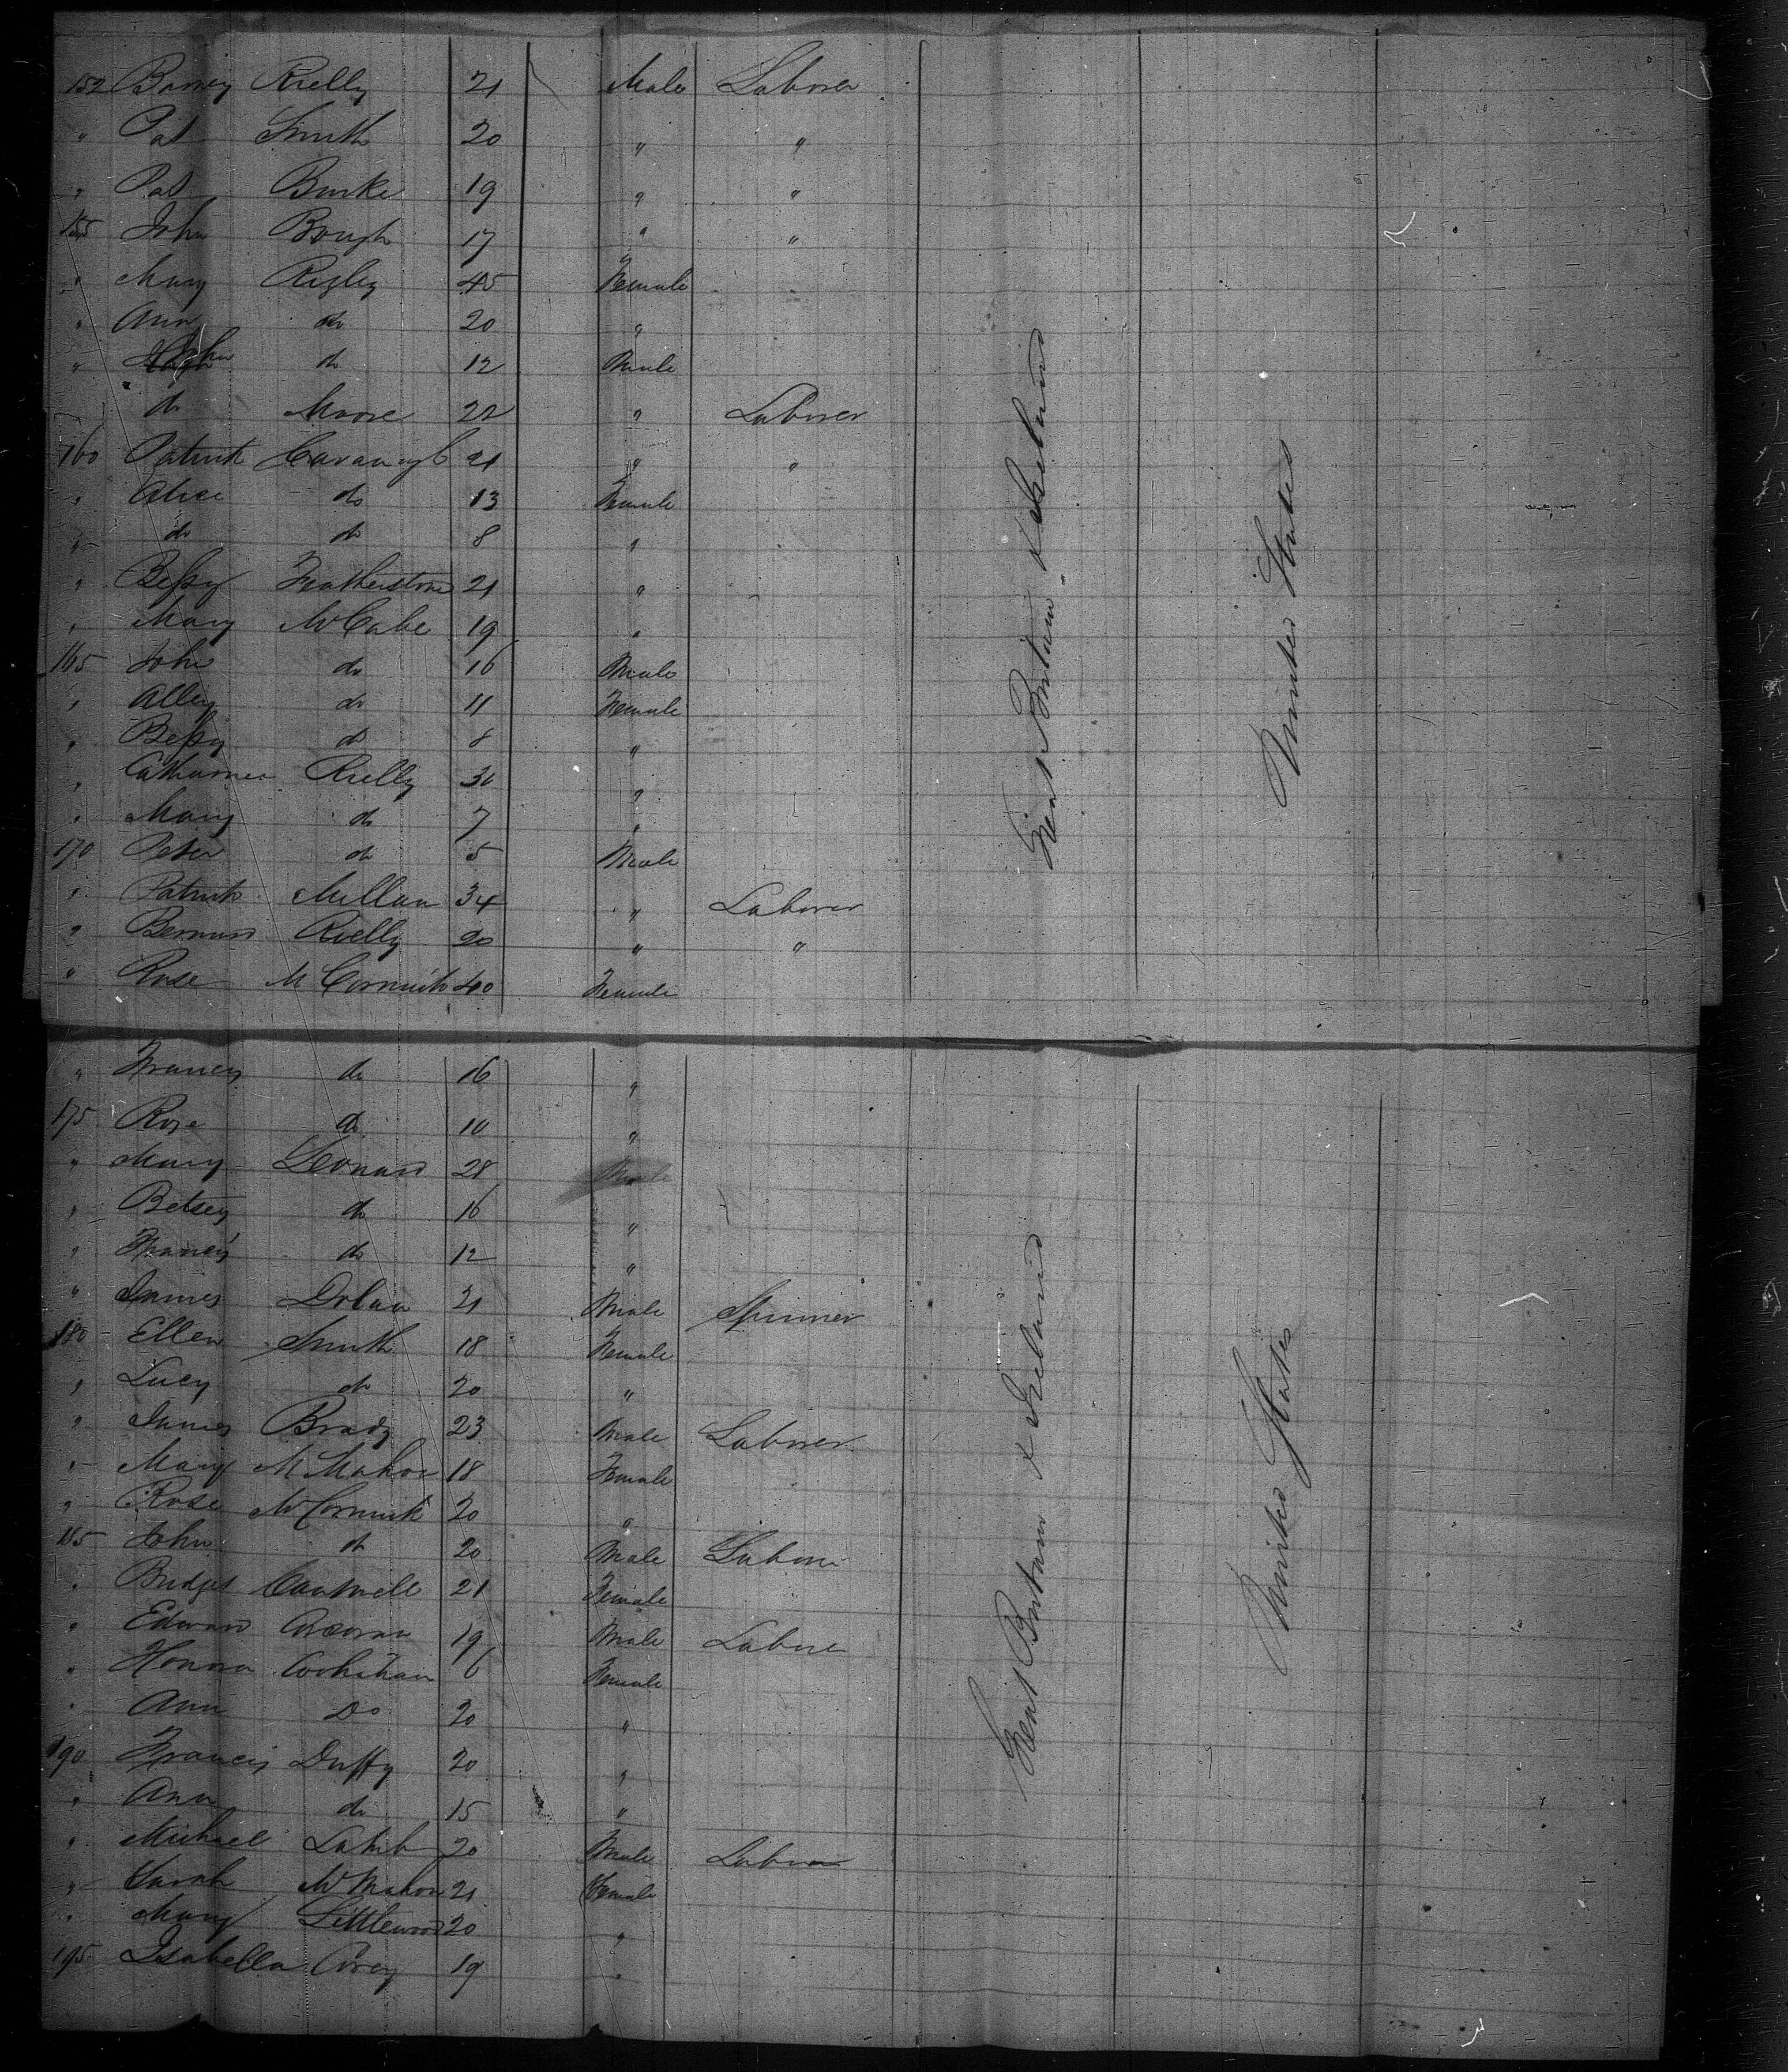 152 Barney Rielly 21 Male Laborer
" Pat Smith 20 " "
" Pat Burke 19 " "
155 John Bough 17 " "
" Mary Rigley 45 Female
" Ann do 20 "
" John do 12 Male
do Moore 22 " Laborer
160 Patrick Cavanagh 21 " "
" Alice do 13 Female
" do do 8 "
" Bessy Featherstone 21 "
" Mary McCabe 19 "
165 John do 16 Male
" Alley do 11 Female
" Bessy do 8 "
" Catharine Rielly 30 "
" Mary do 7 "
170 Peter do 5 Male
" Patrick Mullan 34 " Laborer
" Bernard Rielly 20 " "
" Rose McCormick 40 Female
Great Britain & Ireland
United States
" Francis do 16 "
175 Rose do 10 "
" Mary Leonard 28
" Betsey do 16 "
" Francis do 12 "
" James Dolan 21 Male Spinner
180 Ellen Smith 18 Female
" Lucy do 20 "
" James Brady 23 Male Laborer
" Mary McMahon 18 Female
" Rose McCormick 20 "
185 John do 20 Male Laborer
" Bridget Cantwell 21 Female
" Edward Corcoran 19 Male Laborer
" Honora 6 Female
" Ann Do 20 "
190 Francis Duffy 20 "
" Ann do 15 "
" Michael 20 Male Laborer
" Sarah McMahon 21 Female
" Mary Littlewood 20 "
195 Isabella Corey 19 "
Great Britain & Ireland
United States